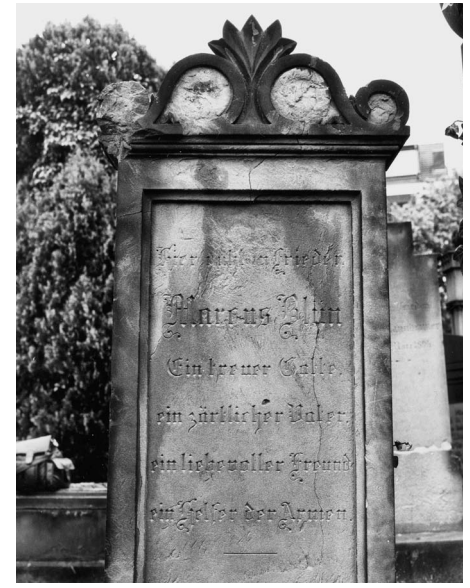 Hier ruht in Frieden
Marcus Blün
Ein treuer Gatte,
ein zärtlicher Vater,
ein liebevoller Freund
ein Helfer der Armen.